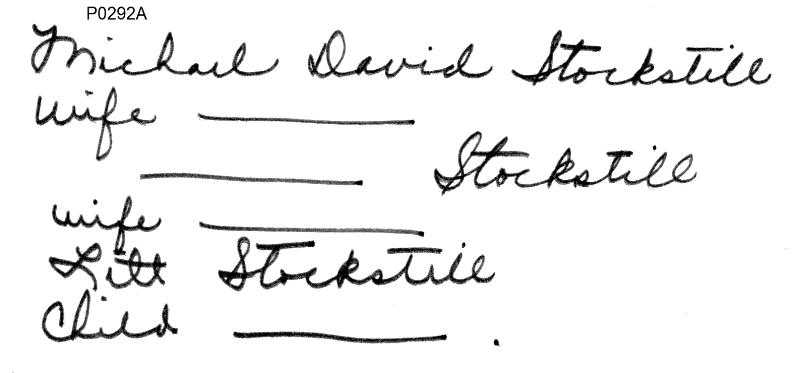 P0292A
Michael David Stockstill
Wife ________
________ Stockstill
wife ________
Litt Stockstill
Child ________.